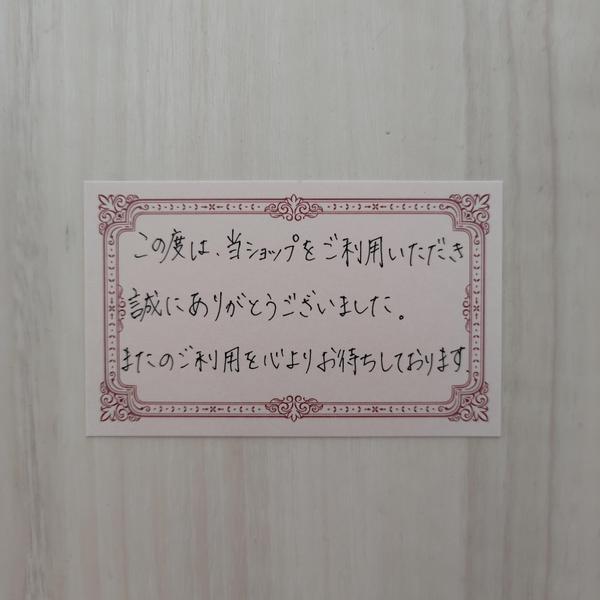 この度は、当ショップをご利用いただき
誠にありがとうございました。
またのご利用を心よりお待ちしております.